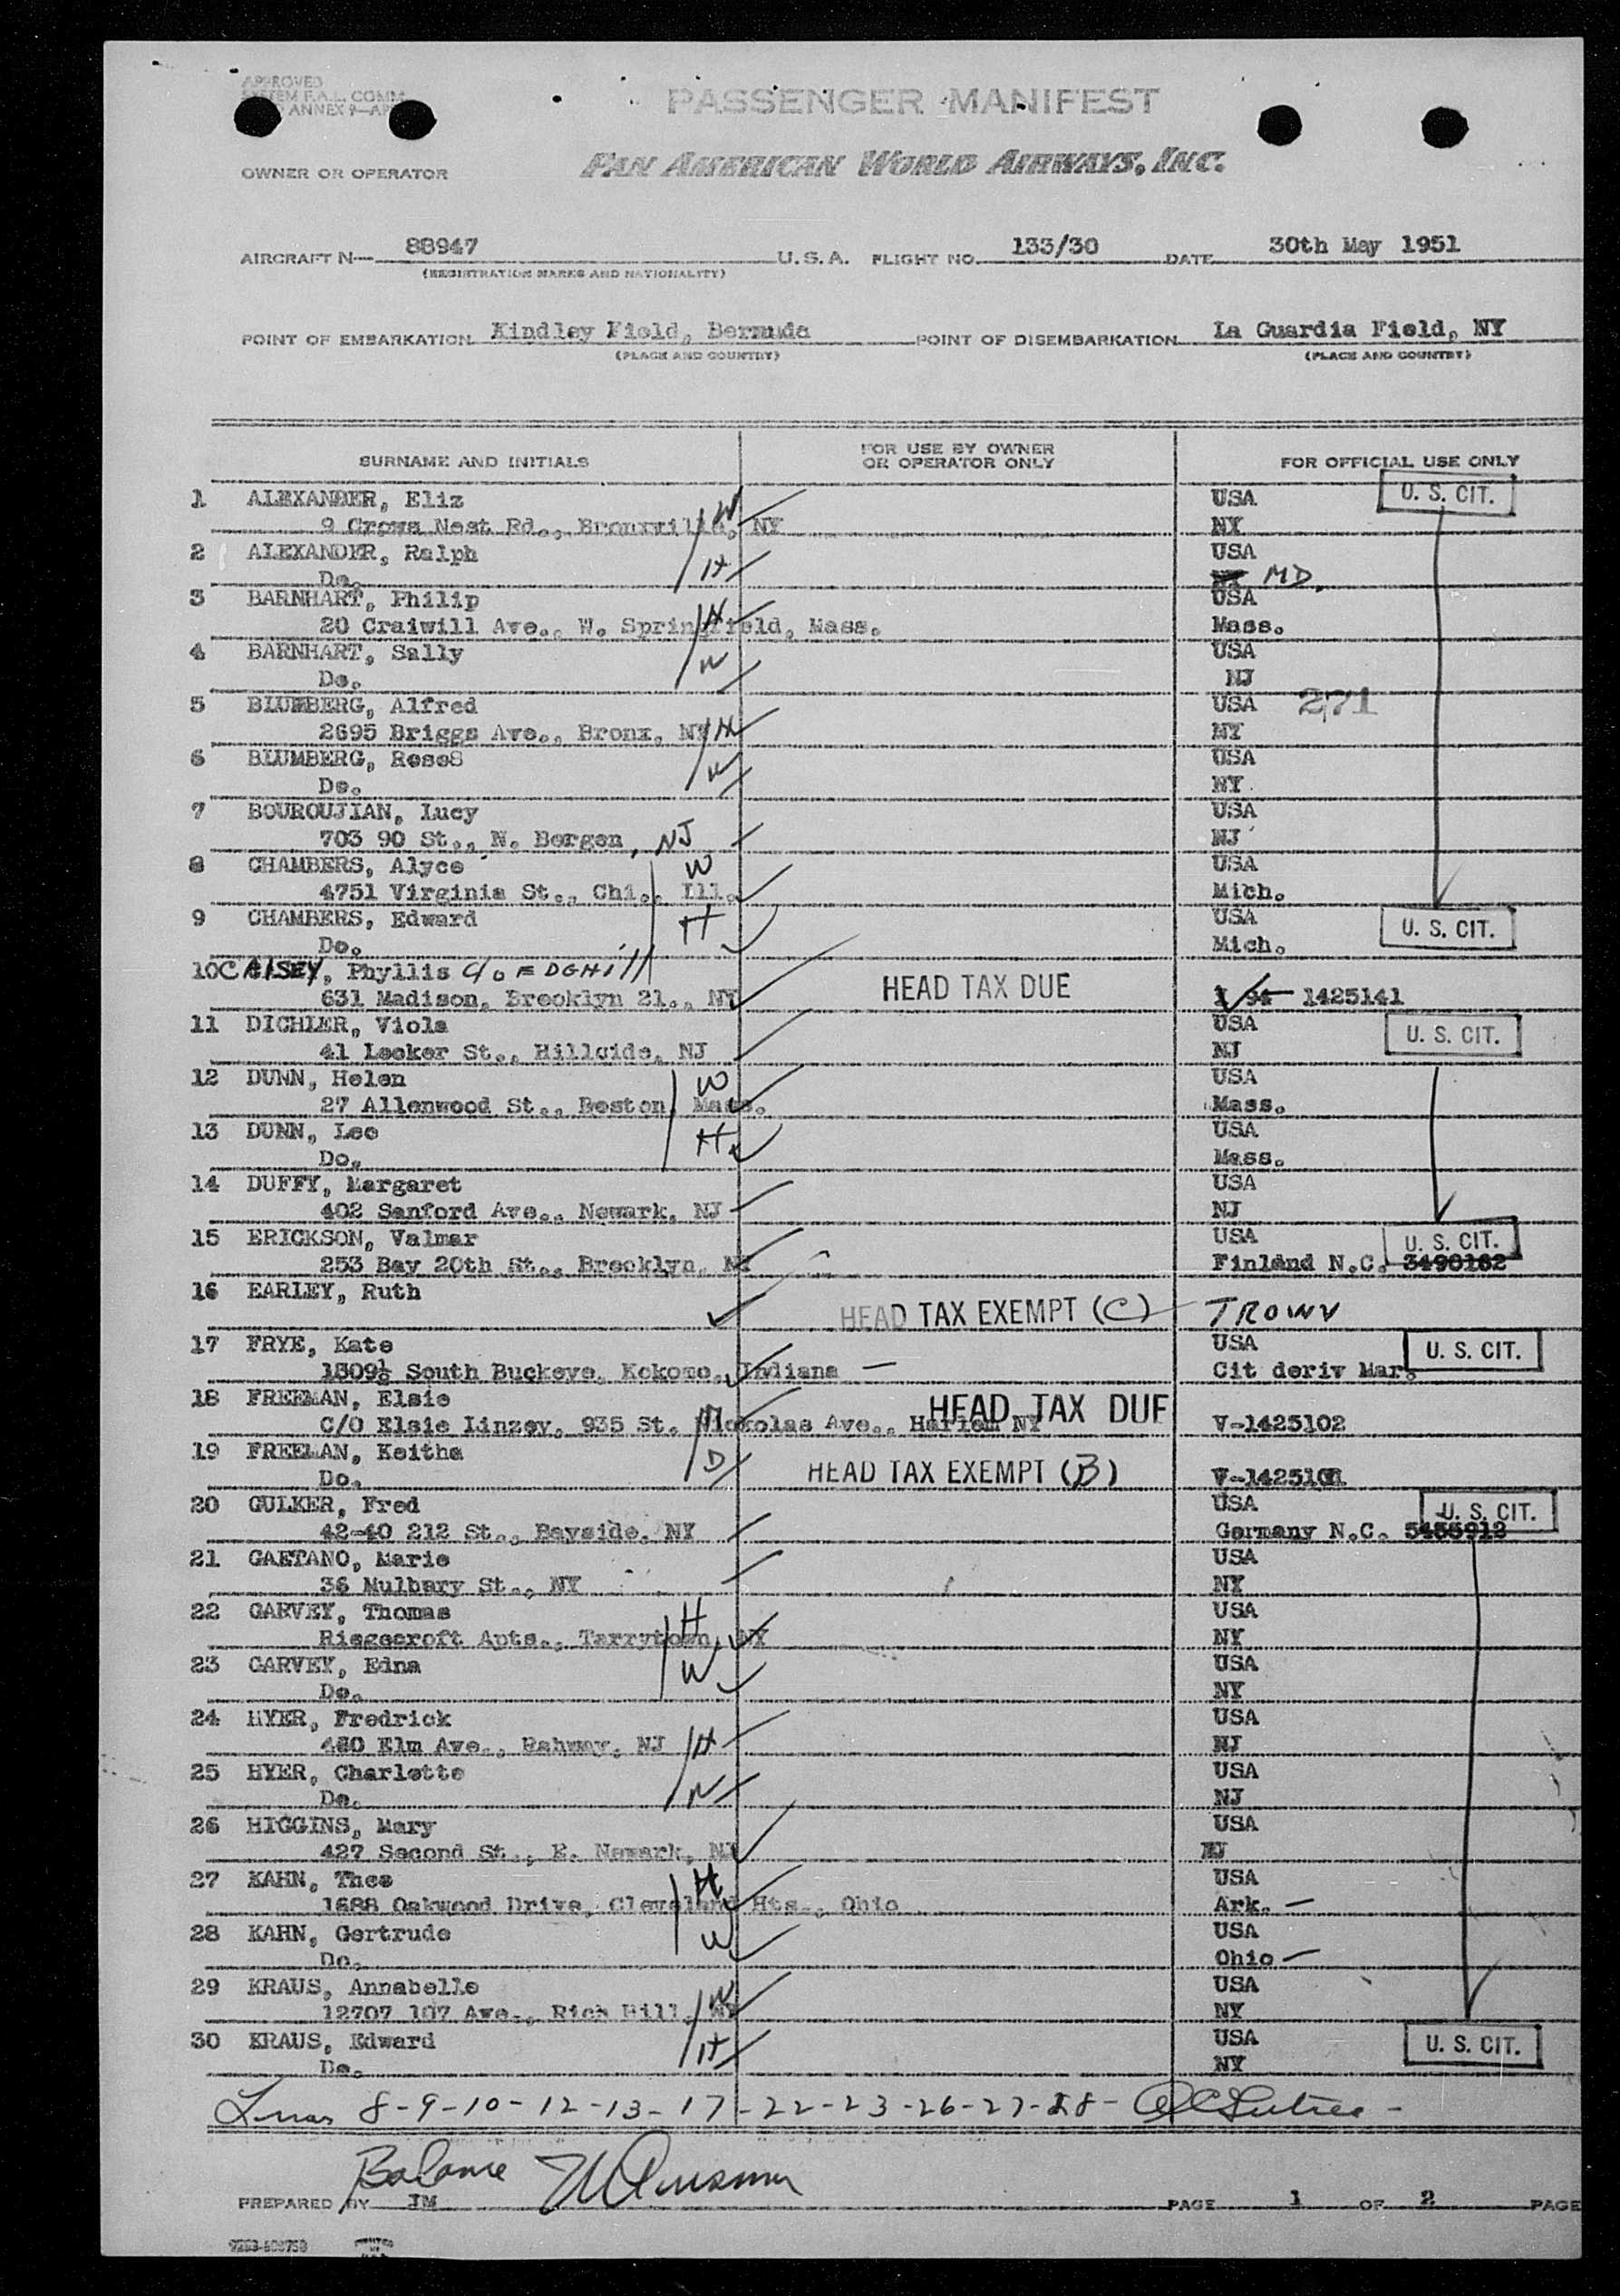 APPROVED
SYSTEM F.A.L. COMM
ANNEX 9—AP
PASSENGER MANIFEST
OWNER OR OPERATOR PAN AMERICAN WORLD AIRWAYS, INC.
AIRCRAFT N— 88947 U.S.A. FLIGHT NO. 133/30 DATE 30th May 1951
(REGISTRATION MARKS AND NATIONALITY)
POINT OF EMBARKATION Kindley Field, Bermuda POINT OF DISEMBARKATION La Guardia Field, NY
(PLACE AND COUNTRY) (PLACE AND COUNTRY)
SURNAME AND INITIALS FOR USE BY OWNER OR OPERATOR ONLY FOR OFFICIAL USE ONLY
1 ALEXANDER, Eliz USA U. S. CIT.
9 Crows Nest Rd., Bronxville, NY W NY
2 ALEXANDER, Ralph USA
Do. H MD.
3 BARNHART, Philip USA
20 Craiwill Ave., W. Springfield, Mass. H Mass.
4 BARNHART, Sally USA
Do. W NJ
5 BLUMBERG, Alfred USA 271
2695 Briggs Ave., Bronx, NY H NY
6 BLUMBERG, RoseS USA
Do. W NY
7 BOUROUJIAN, Lucy USA
703 90 St., N. Bergen, NJ NJ
8 CHAMBERS, Alyce W USA
4751 Virginia St., Chi., Ill. Mich.
9 CHAMBERS, Edward H USA U. S. CIT.
Do. Mich.
10 CAISEY, Phyllis c/o EDGHill HEAD TAX DUE
631 Madison, Brooklyn 21., NY I 94 1425141
11 DICHLER, Viola USA U. S. CIT.
41 Looker St., Hillside, NJ NJ
12 DUNN, Helen W USA
27 Allenwood St., Boston, Mass. Mass.
13 DUNN, Leo H USA
Do. Mass.
14 DUFFY, Margaret USA
402 Sanford Ave., Newark, NJ NJ
15 ERICKSON, Valmar USA U. S. CIT.
253 Bay 20th St., Brooklyn, NY Finland N.C. 3490162
16 EARLEY, Ruth
HEAD TAX EXEMPT (C) TROWV
17 FRYE, Kate USA U. S. CIT.
1509½ South Buckeye, Kokomo, Indiana — Cit deriv Mar.
18 FREEMAN, Elsie HEAD TAX DUE
C/O Elsie Linzey, 935 St. Nickolas Ave., Harlem NY M V-1425102
19 FREEMAN, Keitha HEAD TAX EXEMPT (B)
Do. D V-1425101
20 GULKER, Fred USA U. S. CIT.
42-40 212 St., Bayside, NY Germany N.C. 5455912
21 GAETANO, Marie USA
36 Mulbary St., NY NY
22 GARVEY, Thomas H USA
Riegecroft Apts., Tarrytown, NY NY
23 GARVEY, Edna W USA
Do. NY
24 HYER, Fredrick USA
460 Elm Ave., Rahway, NJ H NJ
25 HYER, Charlotte USA
Do. W NJ
26 HIGGINS, Mary USA
427 Second St., E. Newark, NJ NJ
27 KAHN, Theo H USA
1688 Oakwood Drive, Cleveland Hts., Ohio Ark. —
28 KAHN, Gertrude W USA
Do. Ohio —
29 KRAUS, Annabelle USA
12707 107 Ave., Rich Hill, NY W NY
30 KRAUS, Edward USA U. S. CIT.
Do. H NY
8-9-10-12-13-17-22-23-26-27-28-
Balance
PREPARED BY JM PAGE 1 OF 2 PAGE